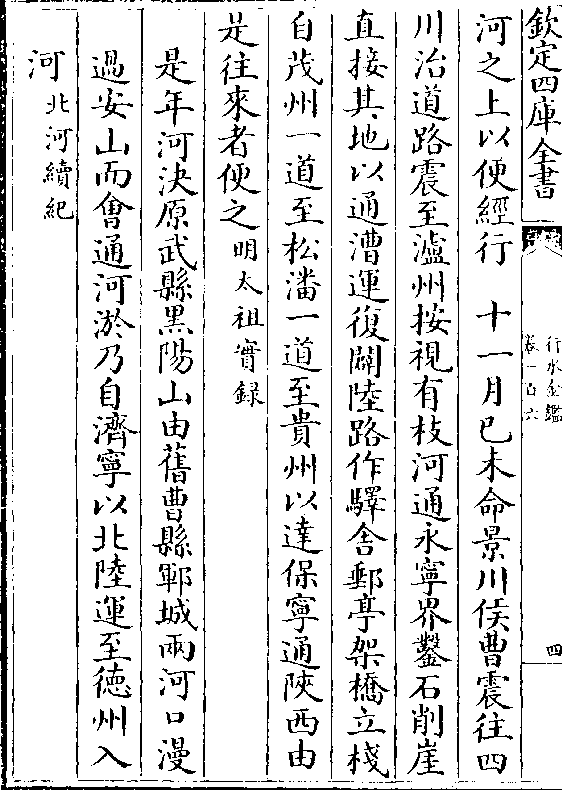 欽定四庫全書
行水金鑑
卷一百六
四
河之上以便經行　十一月己未命景川侯曹震往四
川治道路震至瀘州按視有枝河通永寧界鑿石削崖
直接其地以通漕運復闢陸路作驛舍郵亭架橋立棧
自茂州一道至松潘一道至貴州以達保寧通陝西由
是往來者便之明太祖實錄
是年河決原武縣黑陽山由舊曹縣鄆城兩河口漫
過安山而會通河淤乃自濟寧以北陸運至德州入
河北河續紀